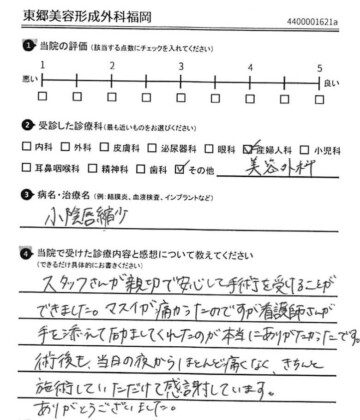 東郷美容形成外科福岡
4400001621a
❶ 当院の評価 (該当する点数にチェックを入れてください)
1 2 3 4 5
悪い 良い
□ □ □ □ □ □ □ □ □
❷ 受診した診療科 (最も近いものをお選びください)
□内科 □外科 □皮膚科 □泌尿器科 □眼科 ☑産婦人科 □小児科
□耳鼻咽喉科 □精神科 □歯科 ☑その他 美容外科
❸ 病名・治療名 (例:結膜炎、血液検査、インプラントなど)
小陰唇縮少
❹ 当院で受けた診療内容と感想について教えてください
(できるだけ具体的にお書きください)
スタッフさんが親切で安心して手術を受けることが
できました。マスイが痛かったのですが看護師さんが
手を添えて励ましてくれたのが本当にありがたかったです。
術後も、当日の夜からほとんど痛くなく、きちんと
施術していただけて感謝しています。
ありがとうございました。